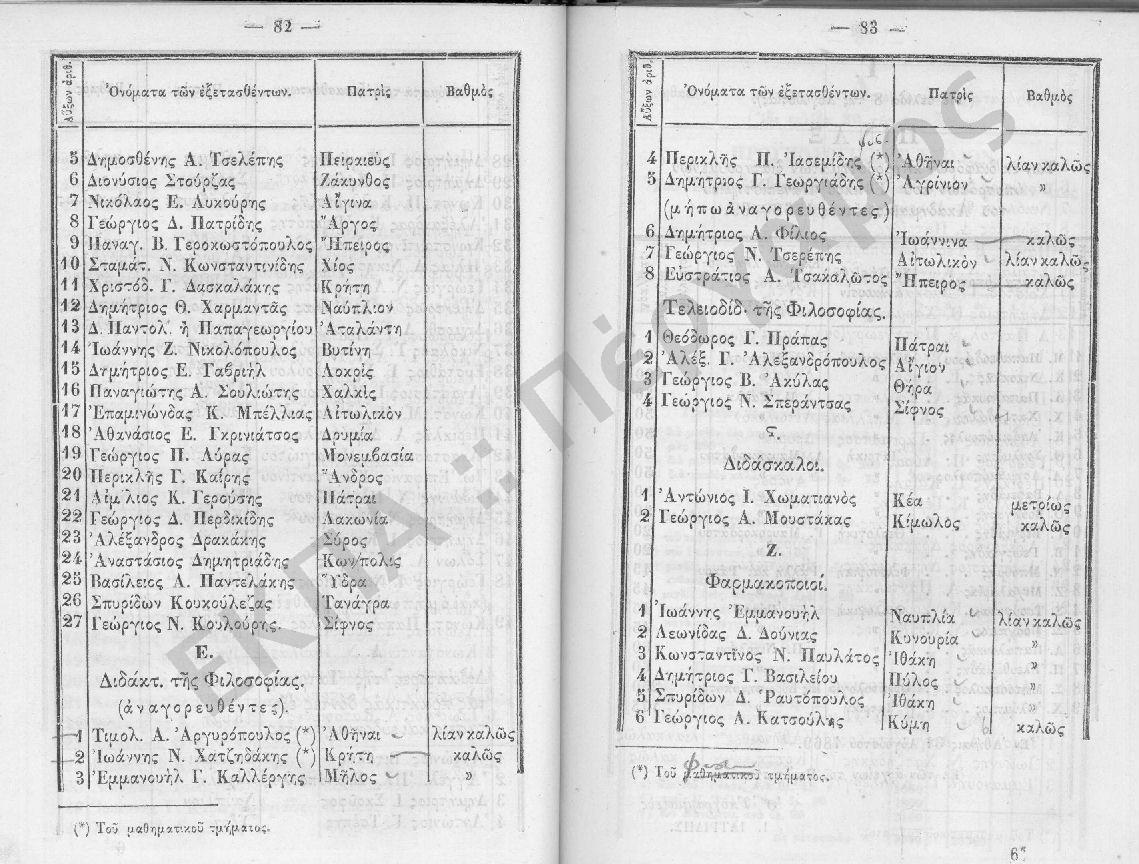 — 82 —
Αὔξων ἀριθ. Ὀνόματα τῶν ἐξετασθέντων. Πατρὶς Βαθμὸς
5 Δημοσθένης Α. Τσελέπης Πειραιεύς
6 Διονύσιος Στούρζας Ζάκυνθος
7 Νικόλαος Ε. Λυκούρης Αἴγινα
8 Γεώργιος Δ. Πατρίδης Ἄργος
9 Παναγ. Β. Γεροκωστόπουλος Ἤπειρος
10 Σταμάτ. Ν. Κωνσταντινίδης Χίος
11 Χριστόδ. Γ. Δασκαλάκης Κρήτη
12 Δημήτριος Θ. Χαρμαντᾶς Ναύπλιον
13 Δ. Παντολ. ἢ Παπαγεωργίου Ἀταλάντη
14 Ἰωάννης Ζ. Νικολόπουλος Βυτίνη
15 Δημήτριος Ε. Γαβριὴλ Λοκρὶς
16 Παναγιώτης Α. Σουλιώτης Χαλκὶς
17 Ἐπαμινώνδας Κ. Μπέλλιας Αἰτωλικὸν
18 Ἀθανάσιος Ε. Γκρινιάτσος Δρυμία
19 Γεώργιος Π. Λύρας Μονεμβασία
20 Περικλῆς Γ. Καΐρης Ἄνδρος
21 Αἰμίλιος Κ. Γερούσης Πάτραι
22 Γεώργιος Δ. Περδικίδης Λακωνία
23 Ἀλέξανδρος Δρακάκης Σύρος
24 Ἀναστάσιος Δημητριάδης Κων/πολις
25 Βασίλειος Α. Παντελάκης Ὕδρα
26 Σπυρίδων Κουκούλεζας Τανάγρα
27 Γεώργιος Ν. Κουλούρης. Σίφνος
Ε.
Διδάκτ. τῆς Φιλοσοφίας.
(ἀναγορευθέντες).
1 Τιμολ. Α. Ἀργυρόπουλος (*) Ἀθῆναι λίαν καλῶς
2 Ἰωάννης Ν. Χατζηδάκης (*) Κρήτη καλῶς
3 Ἐμμανουὴλ Γ. Καλλέργης Μῆλος »
(*) Τοῦ μαθηματικοῦ τμήματος.
— 83 —
Αὔξων ἀριθ. Ὀνόματα τῶν ἐξετασθέντων. Πατρὶς Βαθμὸς
4 Περικλῆς Π. Ἰασεμίδης (*) Ἀθῆναι λίαν καλῶς
5 Δημήτριος Γ. Γεωργιάδης (*) Ἀγρίνιον »
(μήπω ἀναγορευθέντες)
6 Δημήτριος Α. Φίλιος Ἰωάννινα καλῶς
7 Γεώργιος Ν. Τσερέπης Αἰτωλικὸν λίαν καλῶς
8 Εὐστράτιος Α. Τσακαλῶτος Ἤπειρος καλῶς
Τελειοδίδ. τῆς Φιλοσοφίας.
1 Θεόδωρος Γ. Πράπας Πάτραι
2 Ἀλέξ. Γ. Ἀλεξανδρόπουλος Αἴγιον
3 Γεώργιος Β. Ἀκύλας Θήρα
4 Γεώργιος Ν. Σπεράντσας Σίφνος
ς.
Διδάσκαλοι.
1 Ἀντώνιος Ι. Χωματιανὸς Κέα μετρίως
2 Γεώργιος Α. Μουστάκας Κίμωλος καλῶς
Ζ.
Φαρμακοποιοί.
1 Ἰωάννης Ἐμμανουὴλ Ναυπλία λίαν καλῶς
2 Λεωνίδας Δ. Δούνιας Κυνουρία »
3 Κωνσταντῖνος Ν. Παυλάτος Ἰθάκη »
4 Δημήτριος Γ. Βασιλείου Πύλος »
5 Σπυρίδων Δ. Ῥαυτόπουλος Ἰθάκη »
6 Γεώργιος Α. Κατσούλης Κύμη καλῶς
(*) Τοῦ μαθηματικοῦ τμήματος.
6*
ΕΚΠΑ :: Πέργαμος